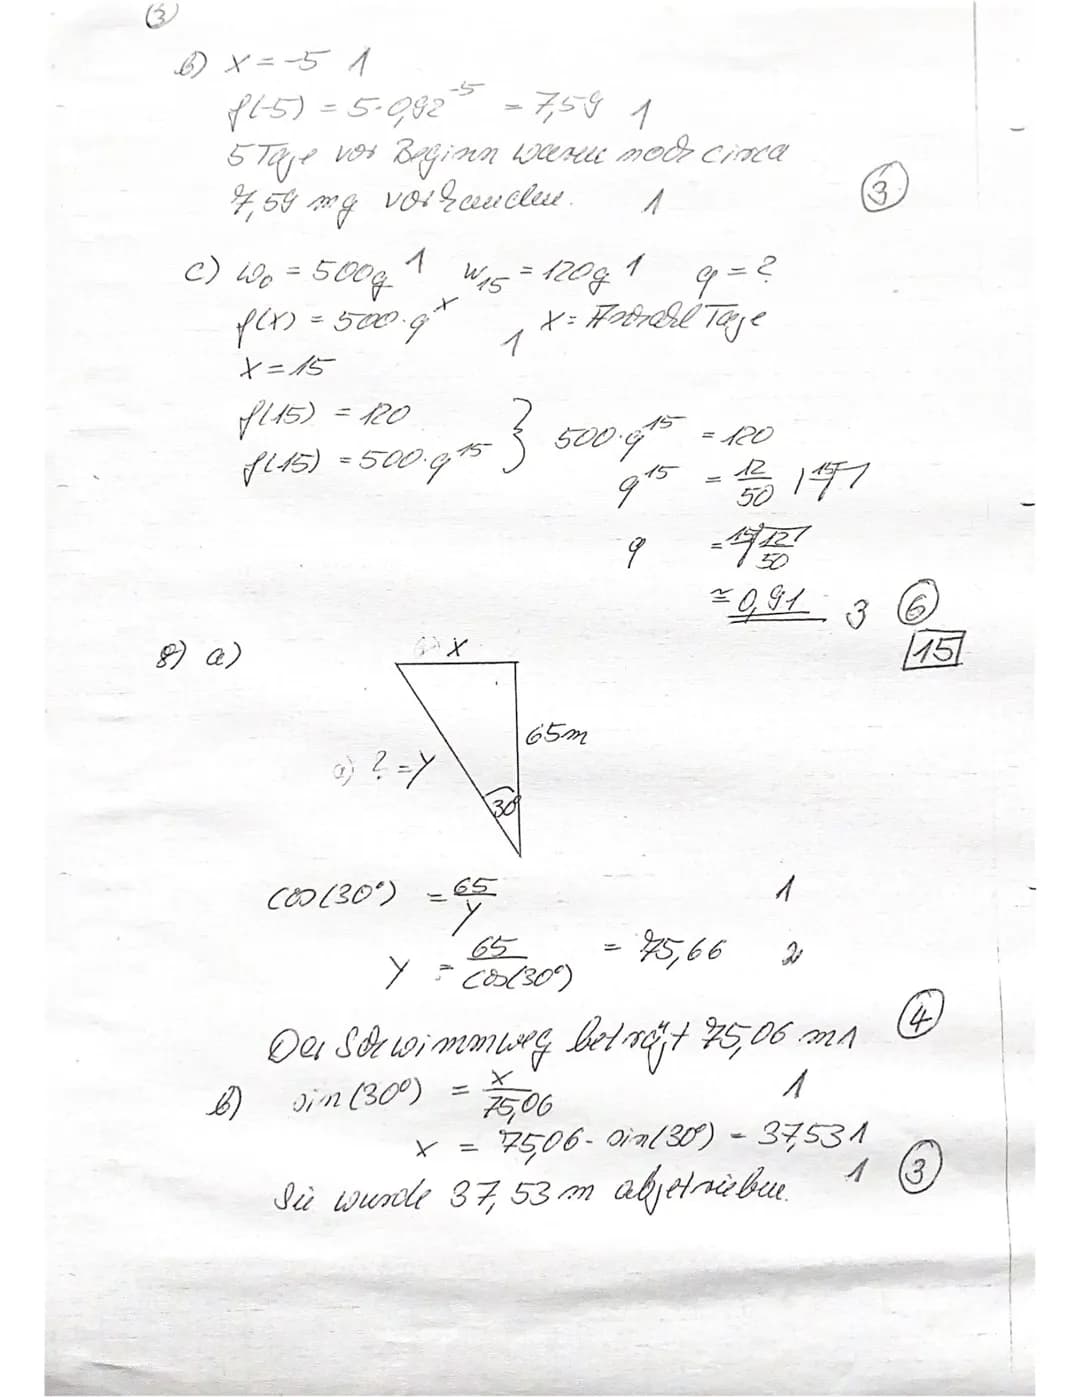 (3)
b) x = -5 1
f(-5) = 5·0,92^-5 = 7,59 1
5 Tage vor Beginn waren noch circa
7,59 mg vorhanden. 1 (3)
c) W₀ = 500g 1 W₁₅ = 120g 1 q = ?
f(x) = 500·q^x 1 x = Anzahl Tage
x = 15
f(15) = 120
f(15) = 500·q^15 } 500·q^15 = 120
q^15 = 12/50 | ¹⁵√
q = ¹⁵√(12/50)
≈ 0,91 3 (6)
15
8) a)
b) x
65m
a) ? = y
30°
cos(30°) = 65/y 1
y = 65/cos(30°) = 75,66 2
Der Schwimmweg beträgt 75,06 m 1 (4)
b) sin(30°) = x/75,06 1
x = 75,06 · sin(30°) = 37,53 1
Sie wurde 37,53 m abgetrieben. 1 (3)